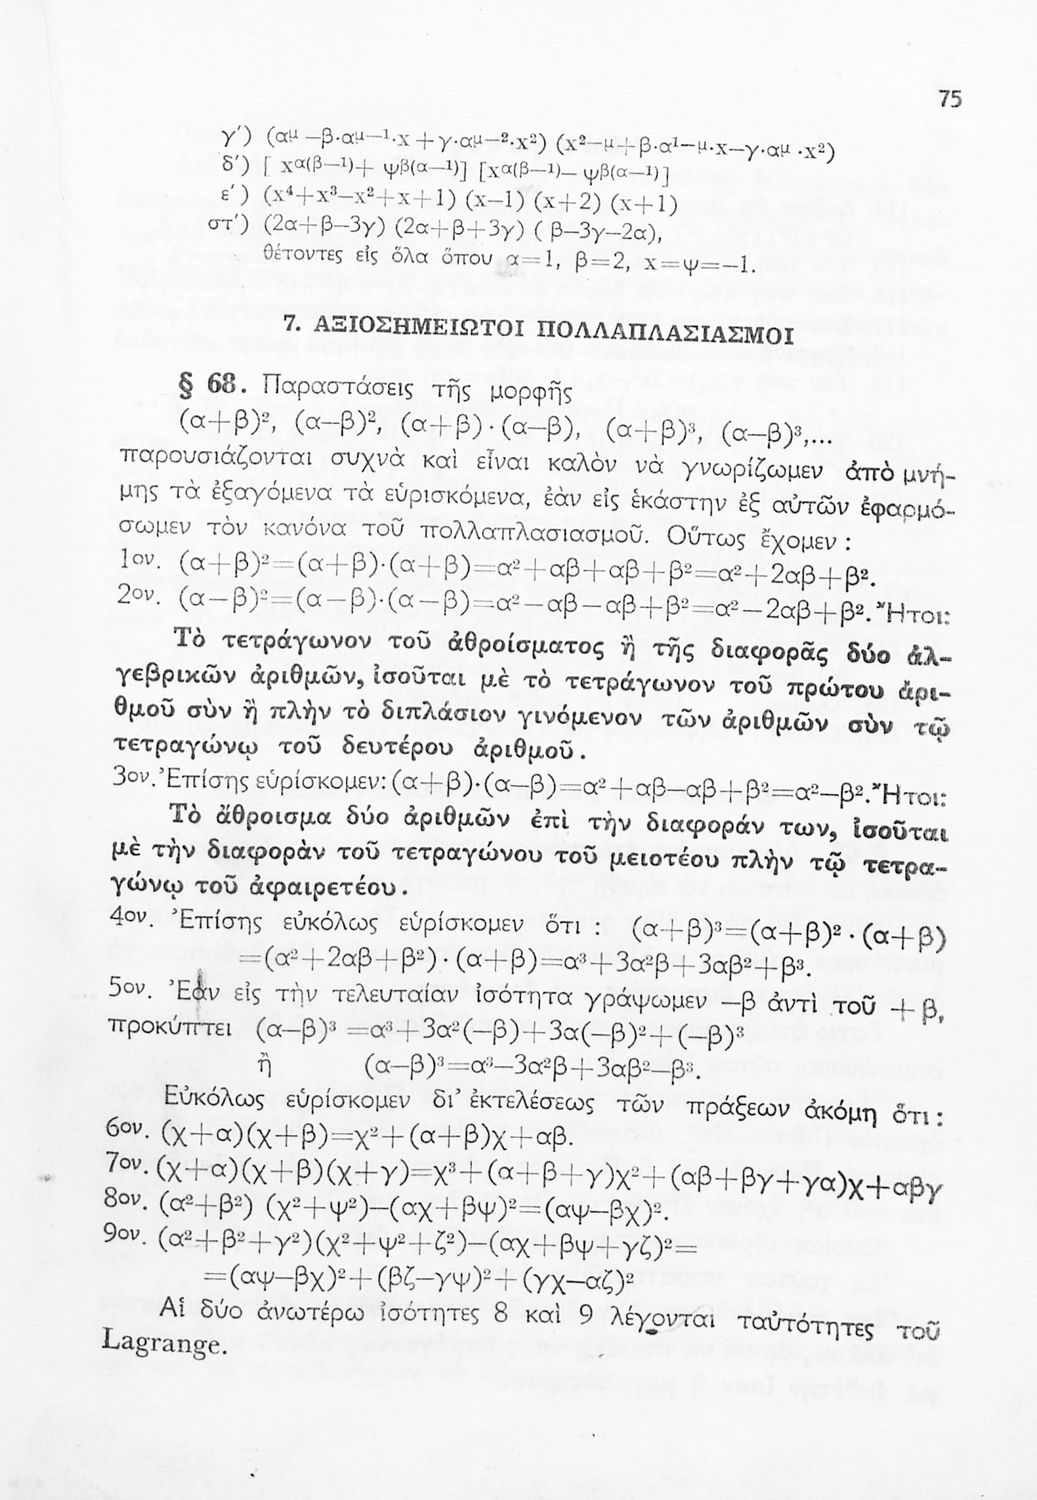 75
γ') (αᵘ —β·αᵘ—¹·x +γ·αᵘ—²·x²) (x²—ᵘ+β·α¹—ᵘ·x—γ·αᵘ ·x²)
δ') [ xα(β—¹)+ ψβ(α—¹)] [xα(β—¹)— ψβ(α—¹)]
ε') (x⁴+x³—x²+x+1) (x—1) (x+2) (x+1)
στ') (2α+β—3γ) (2α+β+3γ) ( β—3γ—2α),
θέτοντες εἰς ὅλα ὅπου α=1, β=2, x=ψ=—1.
7. ΑΞΙΟΣΗΜΕΙΩΤΟΙ ΠΟΛΛΑΠΛΑΣΙΑΣΜΟΙ
§ 68. Παραστάσεις τῆς μορφῆς
(α+β)², (α—β)², (α+β)·(α—β), (α+β)³, (α—β)³,...
παρουσιάζονται συχνὰ καὶ εἶναι καλὸν νὰ γνωρίζωμεν ἀπὸ μνή-
μης τὰ ἐξαγόμενα τὰ εὑρισκόμενα, ἐὰν εἰς ἑκάστην ἐξ αὐτῶν ἐφαρμό-
σωμεν τὸν κανόνα τοῦ πολλαπλασιασμοῦ. Οὕτως ἔχομεν :
1ον. (α+β)²=(α+β)·(α+β)=α²+αβ+αβ+β²=α²+2αβ+β².
2ον. (α—β)²=(α—β)·(α—β)=α²—αβ—αβ+β²=α²—2αβ+β². Ἤτοι:
Τὸ τετράγωνον τοῦ ἀθροίσματος ἢ τῆς διαφορᾶς δύο ἀλ-
γεβρικῶν ἀριθμῶν, ἰσοῦται μὲ τὸ τετράγωνον τοῦ πρώτου ἀρι-
θμοῦ σὺν ἢ πλὴν τὸ διπλάσιον γινόμενον τῶν ἀριθμῶν σὺν τῷ
τετραγώνῳ τοῦ δευτέρου ἀριθμοῦ.
3ον. Ἐπίσης εὑρίσκομεν: (α+β)·(α—β)=α²+αβ—αβ+β²=α²—β². Ἤτοι:
Τὸ ἄθροισμα δύο ἀριθμῶν ἐπὶ τὴν διαφοράν των, ἰσοῦται
μὲ τὴν διαφορὰν τοῦ τετραγώνου τοῦ μειοτέου πλὴν τῷ τετρα-
γώνῳ τοῦ ἀφαιρετέου.
4ον. Ἐπίσης εὐκόλως εὑρίσκομεν ὅτι : (α+β)³=(α+β)²·(α+β)
=(α²+2αβ+β²)·(α+β)=α³+3α²β+3αβ²+β³.
5ον. Ἐὰν εἰς τὴν τελευταίαν ἰσότητα γράψωμεν —β ἀντὶ τοῦ +β,
προκύπτει (α—β)³ =α³+3α²(—β)+3α(—β)²+(—β)³
ἢ (α—β)³=α³—3α²β+3αβ²—β³.
Εὐκόλως εὑρίσκομεν δι' ἐκτελέσεως τῶν πράξεων ἀκόμη ὅτι :
6ον. (χ+α)(χ+β)=χ²+(α+β)χ+αβ.
7ον. (χ+α)(χ+β)(χ+γ)=χ³+(α+β+γ)χ²+(αβ+βγ+γα)χ+αβγ
8ον. (α²+β²) (χ²+ψ²)—(αχ+βψ)²=(αψ—βχ)².
9ον. (α²+β²+γ²)(χ²+ψ²+ζ²)—(αχ+βψ+γζ)²=
=(αψ—βχ)²+(βζ—γψ)²+(γχ—αζ)²
Αἱ δύο ἀνωτέρω ἰσότητες 8 καὶ 9 λέγονται ταὐτότητες τοῦ
Lagrange.